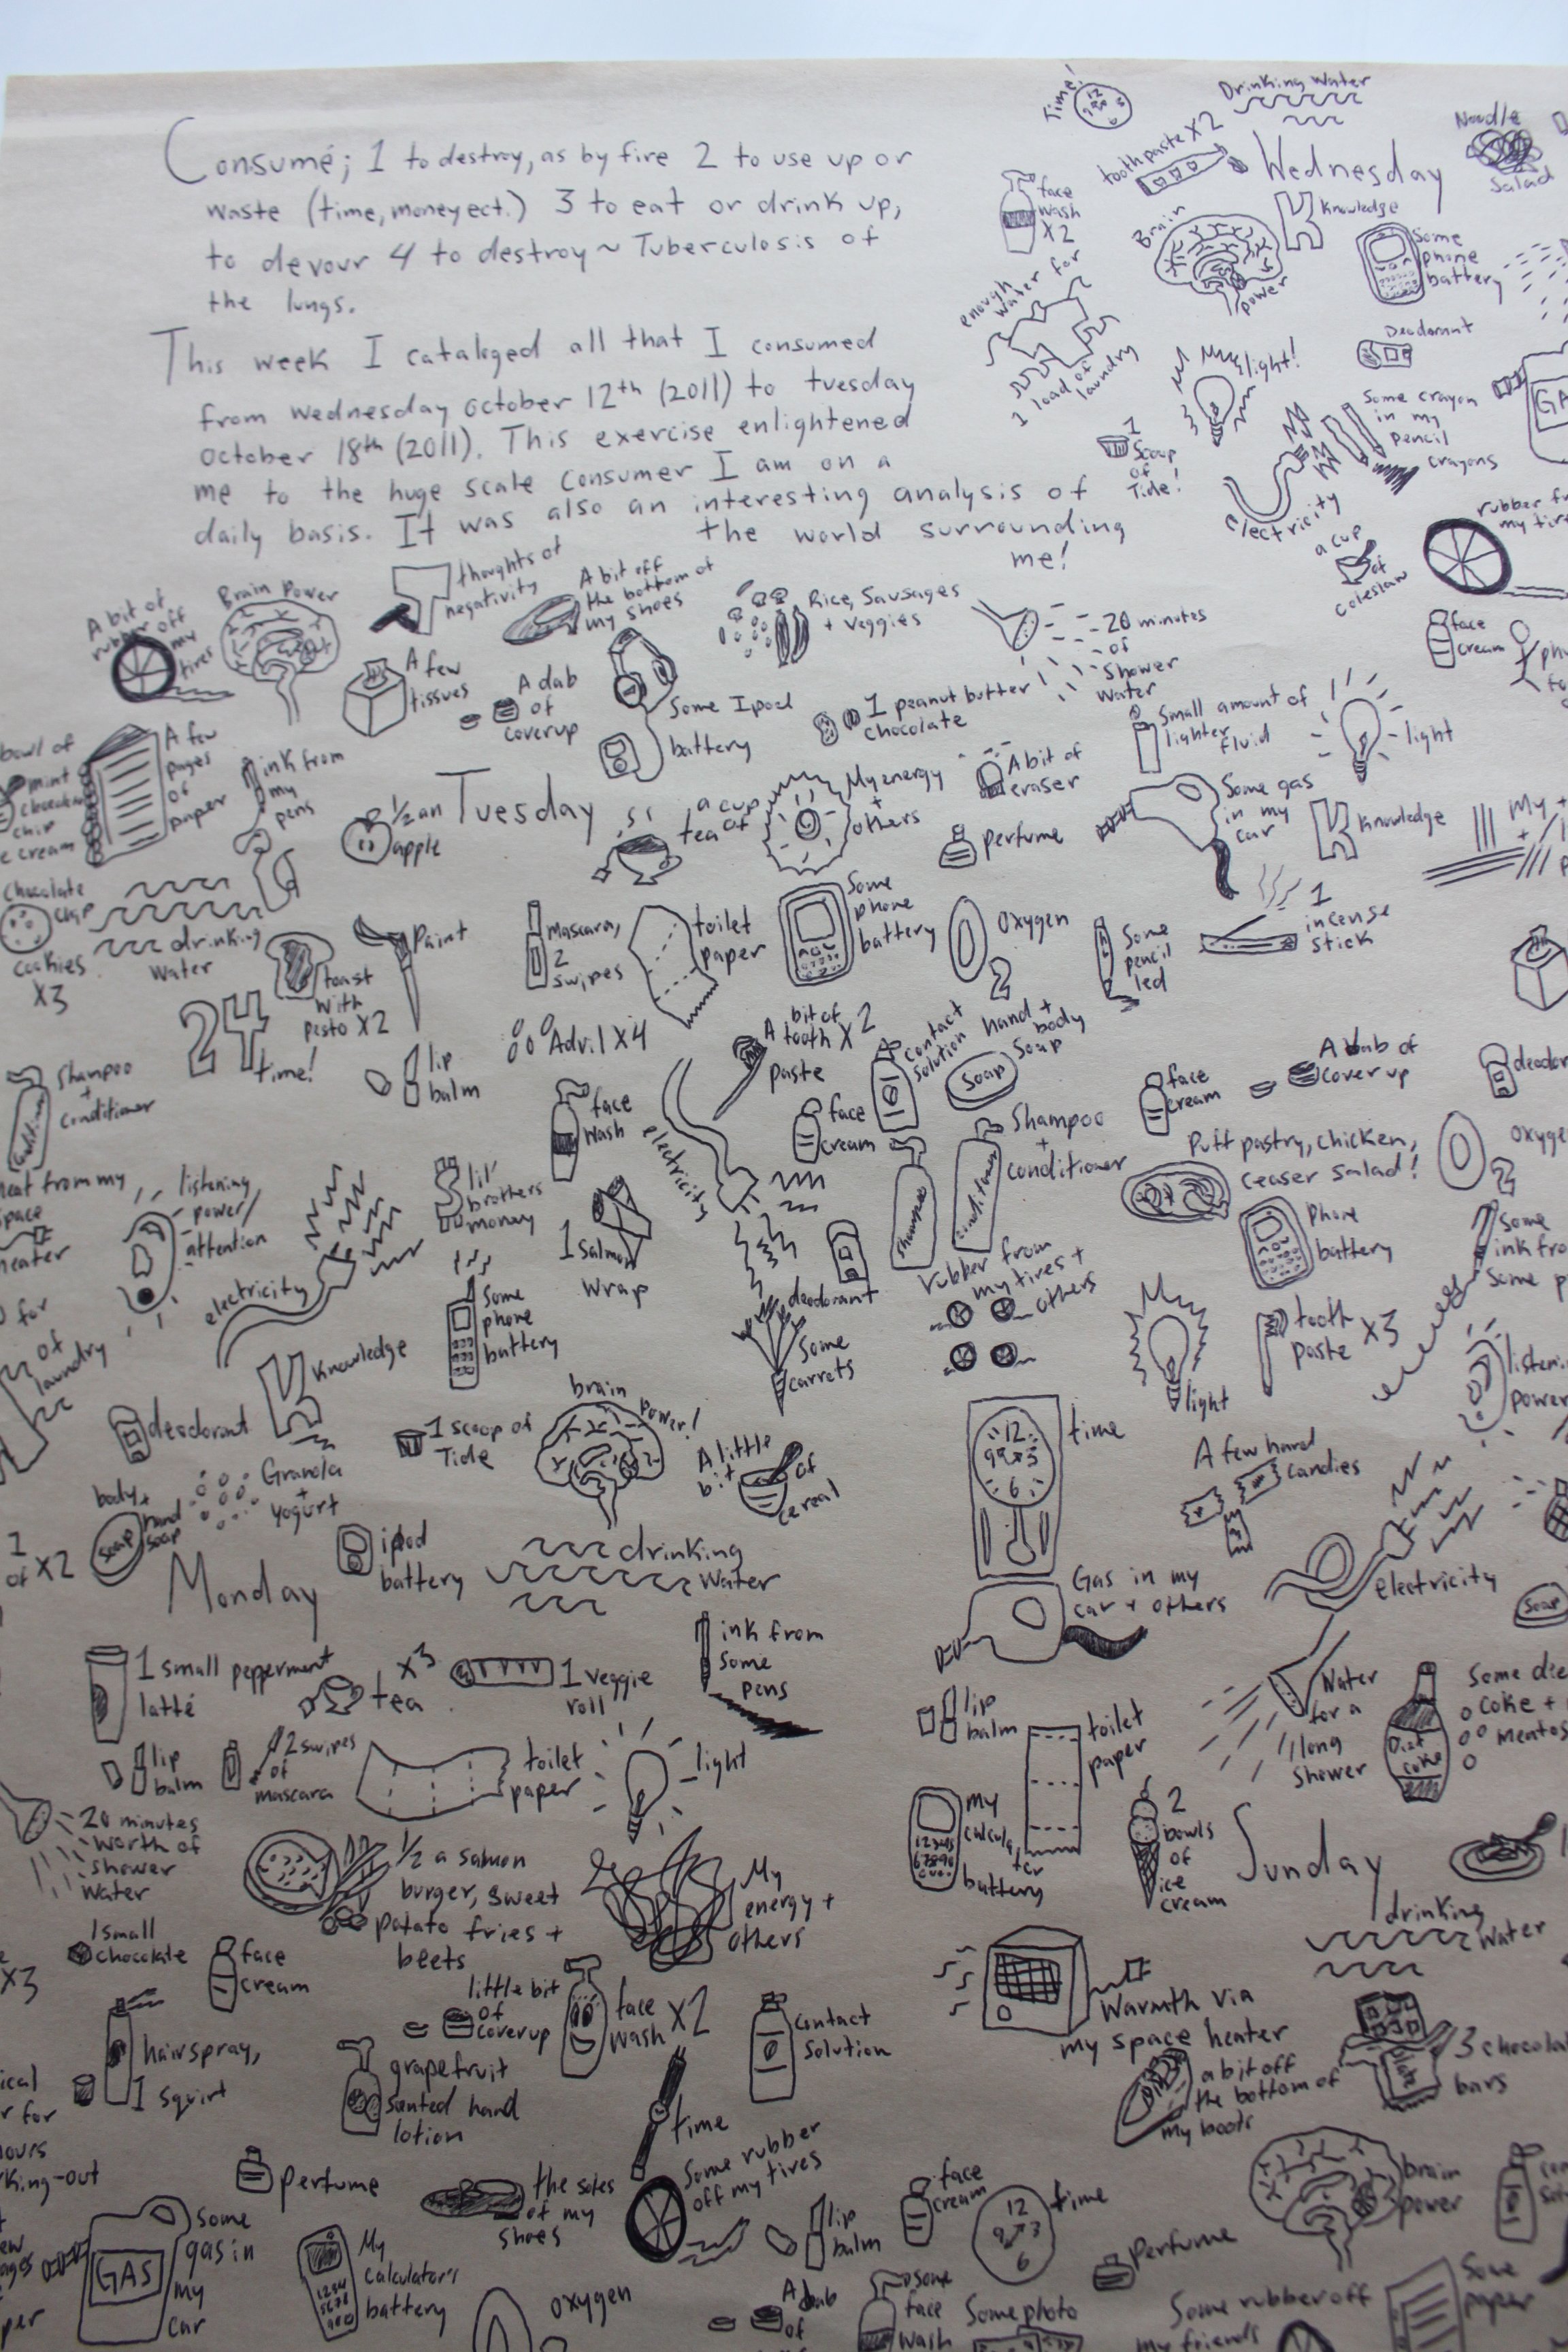 Consumé; 1 to destroy, as by fire 2 to use up or
waste (time, money ect.) 3 to eat or drink up,
to devour 4 to destroy ~ Tuberculosis of
the lungs.
This week I cataloged all that I consumed
from wednesday october 12th (2011) to tuesday
october 18th (2011). This exercise enlightened
me to the huge scale consumer I am on a
daily basis. It was also an interesting analysis of
the world surrounding
me!
Time!
12
Drinking Water
toothpaste x2
Wednesday
Noodle
Salad
face
wash
x2
Brain
power
K Knowledge
Some
phone
battery
enough
water for
1 load of
laundry
Deodorant
light!
1
Scoop
of
Tide!
Some crayon
in my
pencil
crayons
electricity
a cup
of
coleslaw
rubber
my
face
cream
A bit of
rubber off
my
tires
Brain Power
thoughts of
negativity
A bit off
the bottom of
my shoes
Rice, Sausages
+ veggies
20 minutes
of
Shower
Water
A few
tissues
A dab
of
coverup
Some Ipod
battery
1 peanut butter
chocolate
Small amount of
lighter
fluid
light
bowl of
mint
chip
cream
A few
pages
of
paper
ink from
my
pens
Tuesday
1/2 an
apple
a cup
of
tea
My energy
+
others
A bit of
eraser
perfume
Some gas
in my
car
K Knowledge
My +
Chocolate
chip
cookies
x3
drinking
water
toast
with
pesto x2
Paint
mascara,
2
swipes
toilet
paper
Some
phone
battery
Oxygen
2
Some
pencil
led
1
incense
stick
24
time!
lip
balm
Advil x4
A bit of
tooth x2
paste
contact
solution
hand +
body
soap
soap
Shampoo
+
conditioner
face
wash
electricity
face
cream
shampoo
conditioner
Shampoo
+
conditioner
face
cream
A dab of
cover up
Puff pastry, chicken,
ceaser salad!
2
heat from my
space
heater
listening
power/
attention
electricity
lil'
brothers
money
1 Salmon
Wrap
deodorant
rubber from
my tires +
others
Phone
battery
Some
ink
some
for
of
laundry
K Knowledge
Some
phone
battery
Some
carrets
light
tooth
paste x3
power
deodorant
1 scoop of
Tide
brain
power!
A little
bit
of
cereal
12
9 3
6
time
A few hard
candies
body +
hand
soap
soap
Granola
+
yogurt
1
of x2
Monday
ipod
battery
drinking
water
Gas in my
car + others
electricity
soap
1 small pepperment
latté
tea x3
1 veggie
roll
ink from
some
pens
lip
balm
toilet
paper
Water
for a
long
shower
Some
coke +
mentos
Diet
coke
lip
balm
2 swipes
of
mascara
toilet
paper
light
my
battery
2
bowls
of
ice
cream
Sunday
20 minutes
worth of
shower
water
1/2 a salmon
burger, sweet
potato fries +
beets
My
energy +
others
drinking
water
x3
1 small
chocolate
face
cream
little bit
of
coverup
face
wash x2
contact
solution
Warmth via
my space heater
3
bars
hairspray,
1 squirt
grapefruit
sented hand
lotion
time
a bit off
the bottom of
my boots
for
perfume
the soles
of my
shoes
Some rubber
off my tires
lip
balm
face
cream
12
9 3
6
time
brain
power
Perfume
GAS
some
gas in
my
car
My
calculator's
battery
oxygen
A dab
of
some
face
wash
Some photo
Some rubber off
my friends
Some
paper